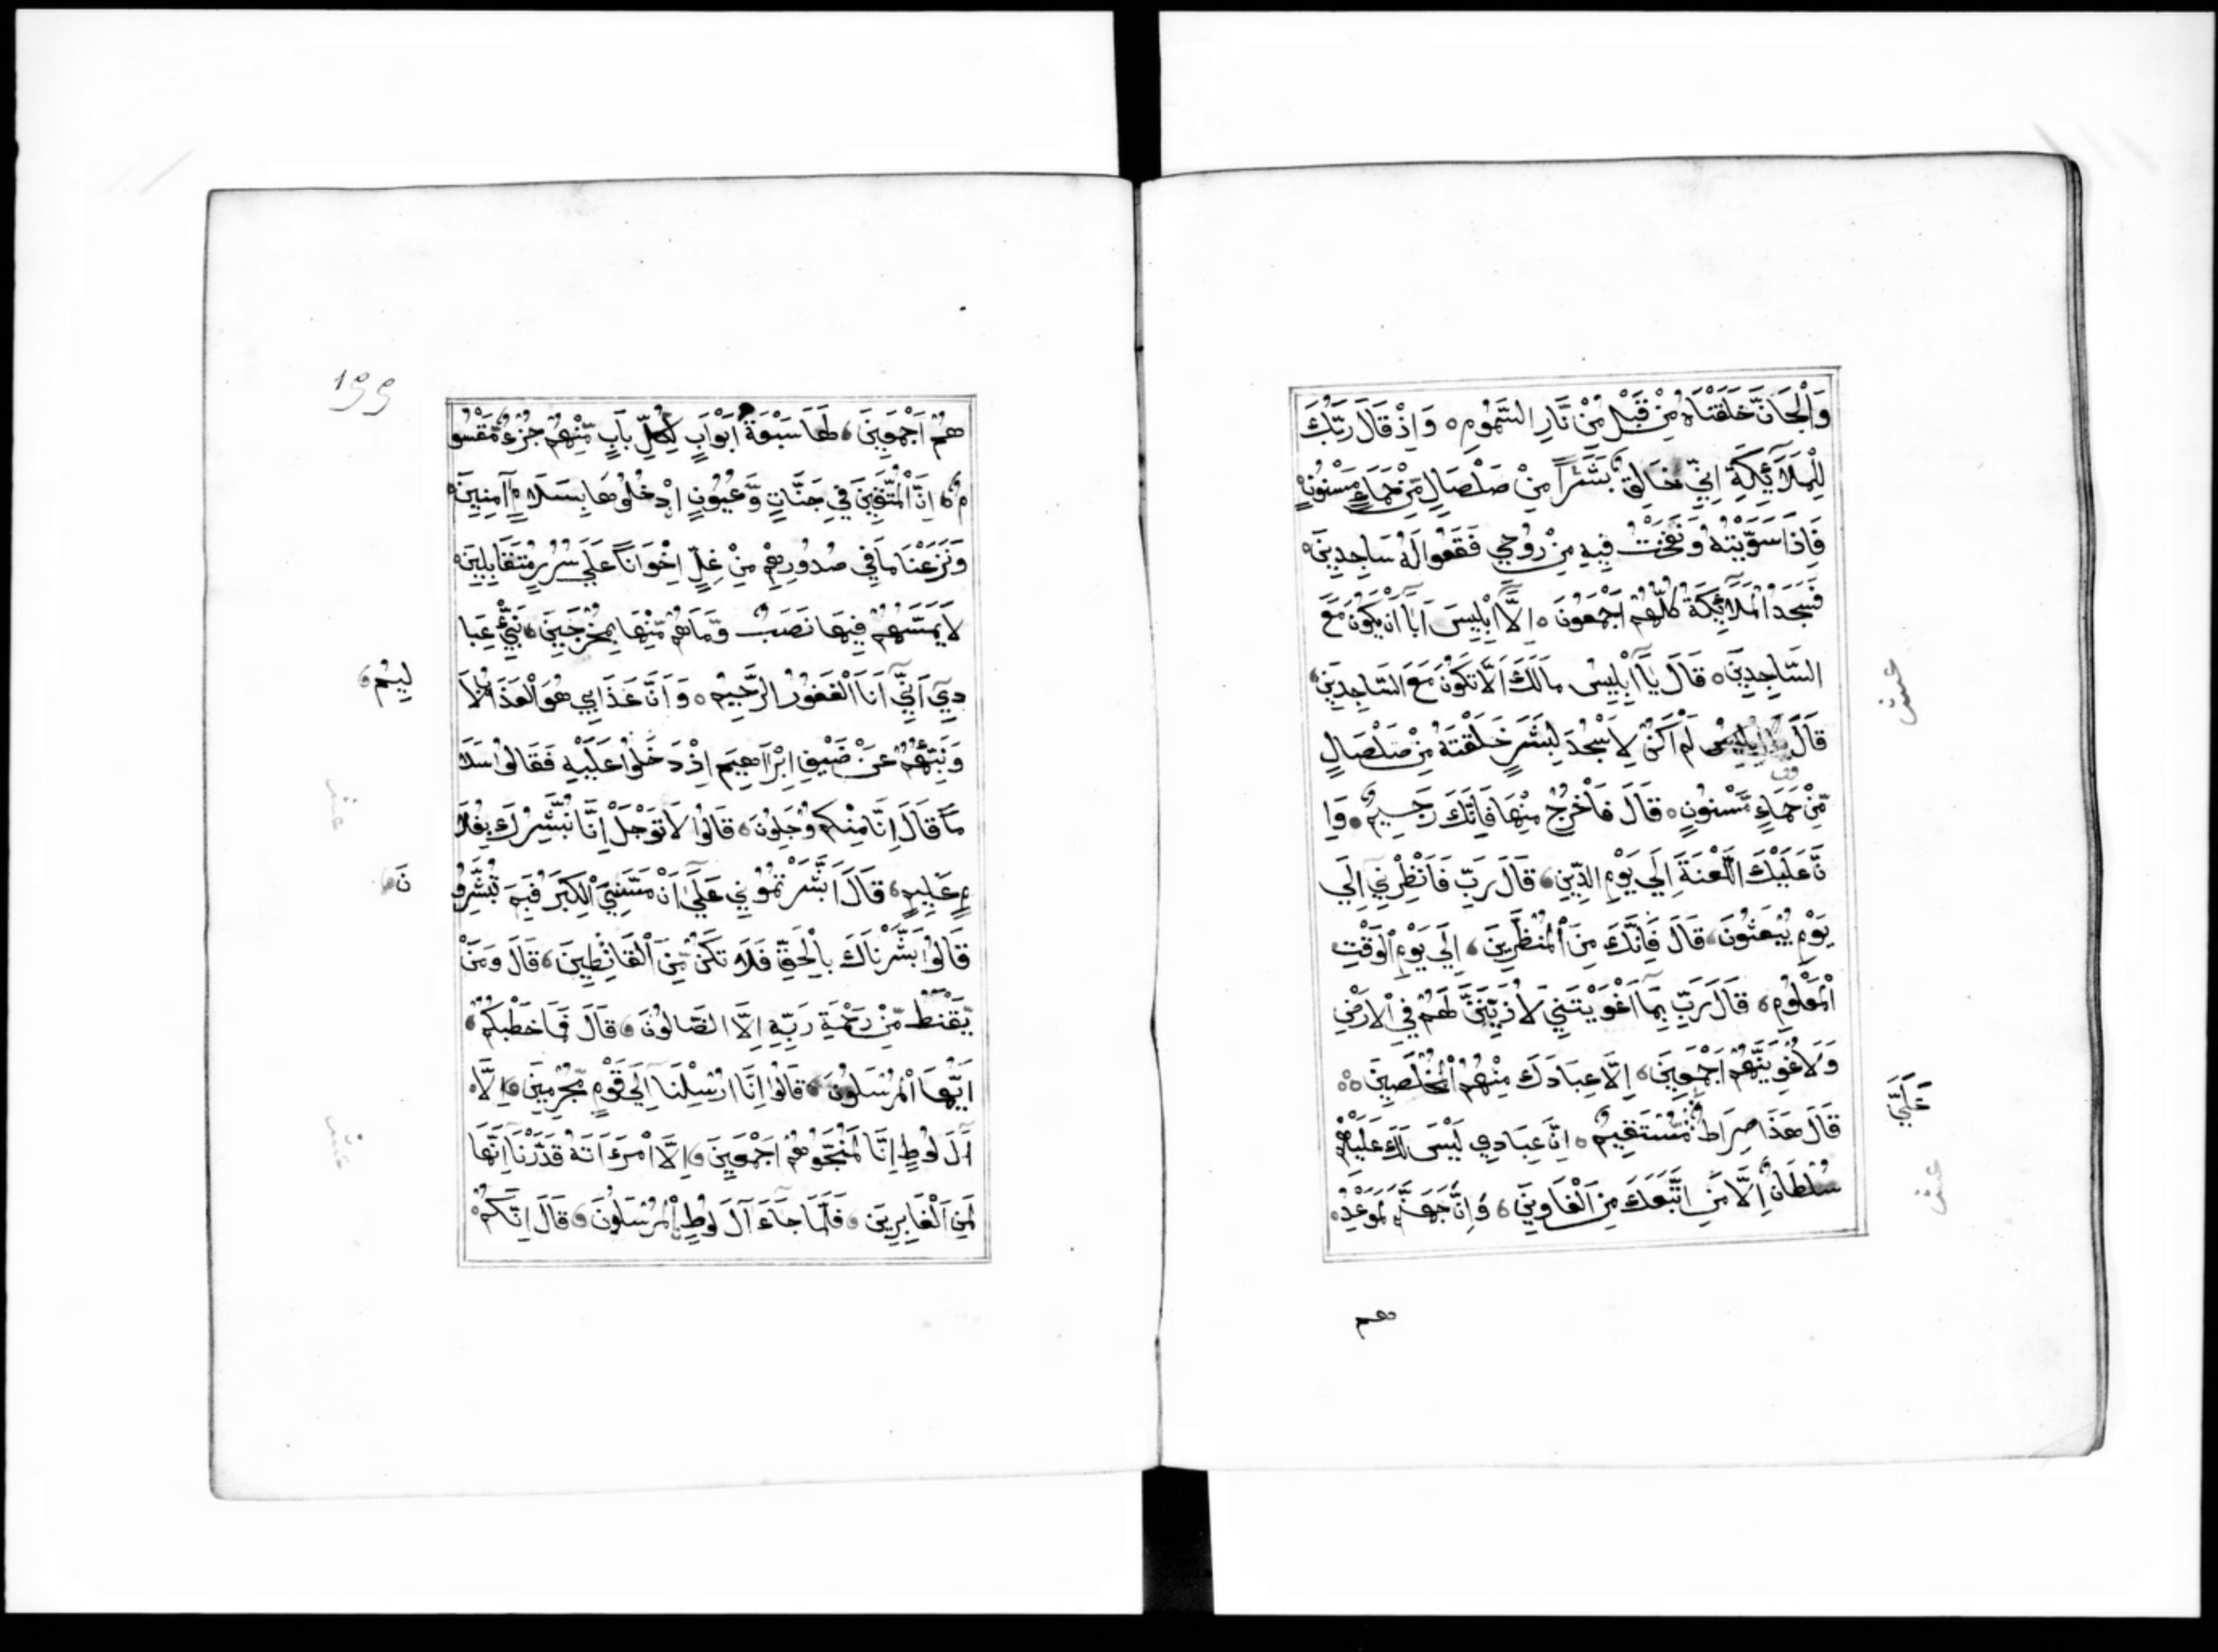 وَالْجَانَّ خَلَقْنَاهُ مِنْ قَبْلُ مِنْ نَّارِ السَّمُومِ ه وَاِذْ قَالَ رَبُّكَ
لِلْمَلَآئِكَةِ اِنِّي خَالِقٌ بَشَرًا مِنْ صَلْصَالٍ مِّنْ حَمَاءٍ مَسْنُونٍ
فَاِذَا سَوَّيْتُهُ وَنَفَخْتُ فِيهِ مِنْ رُوحِي فَقَعُوا لَهُ سَاجِدِينَ ه
فَسَجَدَ الْمَلَآئِكَةُ كُلُّهُمْ اَجْمَعُونَ ه اِلَّا اِبْلِيسَ اَبَا اَنْ يَكُونَ مَعَ
السَّاجِدِينَ ه قَالَ يَا اِبْلِيسُ مَالَكَ اَلَّا تَكُونَ مَعَ السَّاجِدِينَ
عش
قَالَ لَمْ اَكُنْ لِاَسْجُدَ لِبَشَرٍ خَلَقْتَهُ مِنْ صَلْصَالٍ
مِّنْ حَمَاءٍ مَّسْنُونٍ ه قَالَ فَاخْرُجْ مِنْهَا فَاِنَّكَ رَجِيمٌ ه وَاِ
نَّ عَلَيْكَ اللَّعْنَةَ اِلَي يَوْمِ الدِّينِ قَالَ رَبِّ فَاَنْظِرْنِي اِلَي
يَوْمِ يُبْعَثُونَ قَالَ فَاِنَّكَ مِنَ الْمُنْظَرِينَ اِلَي يَوْمِ الْوَقْتِ
الْمَعْلُومِ قَالَ رَبِّ بِمَا اَغْوَيْتَنِي لَاُزَيِّنَنَّ لَهُمْ فِي الْاَرْضِ
وَلَاُغْوِيَنَّهُمْ اَجْمَعِينَ اِلَّا عِبَادَكَ مِنْهُمُ الْمُخْلَصِينَ ه
عَلَيَّ
قَالَ هَذَا صِرَاطٌ مُّسْتَقِيمٌ ه اِنَّ عِبَادِي لَيْسَ لَكَ عَلَيْهِمْ
عش
سُلْطَانٌ اِلَّا مَنِ اتَّبَعَكَ مِنَ الْغَاوِينَ وَاِنَّ جَهَنَّمَ لَمَوْعِدُ ه
هم
١٩٩
هُمْ اَجْمَعِينَ لَهَا سَبْعَةُ اَبْوَابٍ لِكُلِّ بَابٍ مِّنْهُمْ جُزْءٌ مَّقْسُو
مٌ اِنَّ الْمُتَّقِينَ فِي جَنَّاتٍ وَّعُيُونٍ اُدْخُلُوهَا بِسَلَامٍ آمِنِينَ ه
وَنَزَعْنَا مَا فِي صُدُورِهِمْ مِنْ غِلٍّ اِخْوَانًا عَلَي سُرُرٍ مُتَقَابِلِينَ ه
لَا يَمَسُّهُمْ فِيهَا نَصَبٌ وَّمَا هُمْ مِّنْهَا بِمُخْرَجِينَ نَبِّئْ عِبَا
دِي اَنِّي اَنَا الْغَفُورُ الرَّحِيمُ ه وَاَنَّ عَذَابِي هُوَ الْعَذَابُ الْاَ
لِيمُ
وَنَبِّئْهُمْ عَنْ ضَيْفِ اِبْرَاهِيمَ اِذْ دَخَلُوا عَلَيْهِ فَقَالُوا سَلَا
عش
مًا قَالَ اِنَّا مِنْكُمْ وَجِلُونَ ه قَالُوا لَا تَوْجَلْ اِنَّا نُبَشِّرُكَ بِغُلَا
مٍ عَلِيمٍ قَالَ اَبَشَّرْتُمُونِي عَلَي اَنْ مَسَّنِيَ الْكِبَرُ فَبِمَ تُبَشِّرُو
نَ
قَالُوا بَشَّرْنَاكَ بِالْحَقِّ فَلَا تَكُنْ مِّنَ الْقَانِطِينَ قَالَ وَمَنْ
يَّقْنَطُ مِّنْ رَحْمَةِ رَبِّهِ اِلَّا الضَّالُّونَ قَالَ فَمَا خَطْبُكُمْ
اَيُّهَا الْمُرْسَلُونَ قَالُوا اِنَّا اُرْسِلْنَا اِلَي قَوْمٍ مُّجْرِمِينَ اِلَّا
آلَ لُوطٍ اِنَّا لَمُنَجُّوهُمْ اَجْمَعِينَ اِلَّا امْرَءَاتَهُ قَدَّرْنَا اِنَّهَا
عش
لَمِنَ الْغَابِرِينَ فَلَمَّا جَآءَ آلَ لُوطٍ الْمُرْسَلُونَ قَالَ اِنَّكُمْ